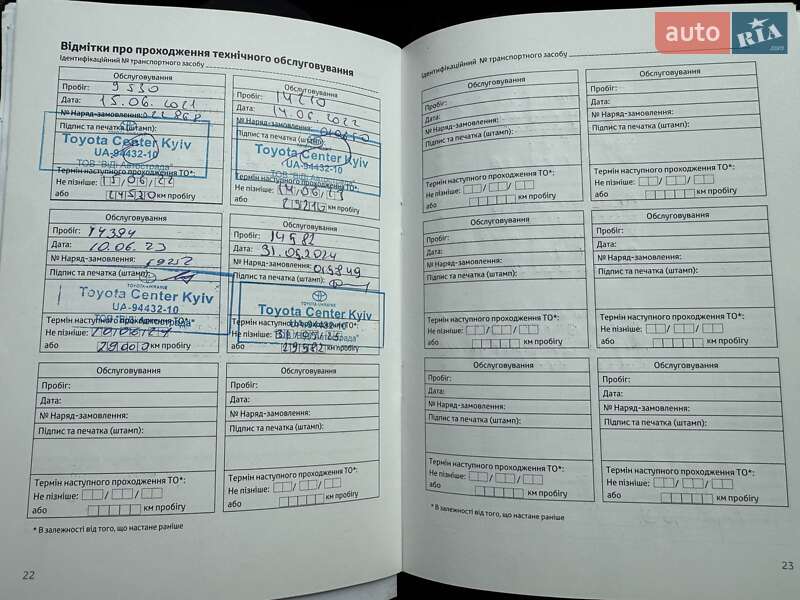 Відмітки про проходження технічного обслуговування
Ідентифікаційний № транспортного засобу
Обслуговування
Пробіг: 9530
Дата: 15.06.2021
№ Наряд-замовлення:
Підпис та печатка (штамп):
Toyota Center Kyiv
UA-94432-10
ТОВ "ВіДі Автострада"
Термін наступного проходження ТО*:
Не пізніше: 15/06/22
або 24530 км пробігу
Обслуговування
Пробіг: 14210
Дата: 14.06.2022
№ Наряд-замовлення:
Підпис та печатка (штамп):
Toyota Center Kyiv
UA-94432-10
ТОВ "ВіДі Автострада"
Термін наступного проходження ТО*:
Не пізніше: 14/06/23
або 29210 км пробігу
Обслуговування
Пробіг: 14394
Дата: 10.06.23
№ Наряд-замовлення:
Підпис та печатка (штамп):
TOYOTA-UKRAINE
Toyota Center Kyiv
UA-94432-10
ТОВ "ВіДі Автострада"
Термін наступного проходження ТО*:
Не пізніше: 10/06/24
або 29000 км пробігу
Обслуговування
Пробіг: 14582
Дата: 31.05.2024
№ Наряд-замовлення: 019849
Підпис та печатка (штамп):
TOYOTA-UKRAINE
Toyota Center Kyiv
UA-94432-10
Термін наступного проходження ТО*:
Не пізніше:
або 29582 км пробігу
Обслуговування
Пробіг:
Дата:
№ Наряд-замовлення:
Підпис та печатка (штамп):
Термін наступного проходження ТО*:
Не пізніше:
або км пробігу
Обслуговування
Пробіг:
Дата:
№ Наряд-замовлення:
Підпис та печатка (штамп):
Термін наступного проходження ТО*:
Не пізніше:
або км пробігу
* В залежності від того, що настане раніше
22
auto RIA
.com
Ідентифікаційний № транспортного засобу
Обслуговування
Пробіг:
Дата:
№ Наряд-замовлення:
Підпис та печатка (штамп):
Термін наступного проходження ТО*:
Не пізніше:
або км пробігу
Обслуговування
Пробіг:
Дата:
№ Наряд-замовлення:
Підпис та печатка (штамп):
Термін наступного проходження ТО*:
Не пізніше:
або км пробігу
Обслуговування
Пробіг:
Дата:
№ Наряд-замовлення:
Підпис та печатка (штамп):
Термін наступного проходження ТО*:
Не пізніше:
або км пробігу
Обслуговування
Пробіг:
Дата:
№ Наряд-замовлення:
Підпис та печатка (штамп):
Термін наступного проходження ТО*:
Не пізніше:
або км пробігу
Обслуговування
Пробіг:
Дата:
№ Наряд-замовлення:
Підпис та печатка (штамп):
Термін наступного проходження ТО*:
Не пізніше:
або км пробігу
Обслуговування
Пробіг:
Дата:
№ Наряд-замовлення:
Підпис та печатка (штамп):
Термін наступного проходження ТО*:
Не пізніше:
або км пробігу
* В залежності від того, що настане раніше
23